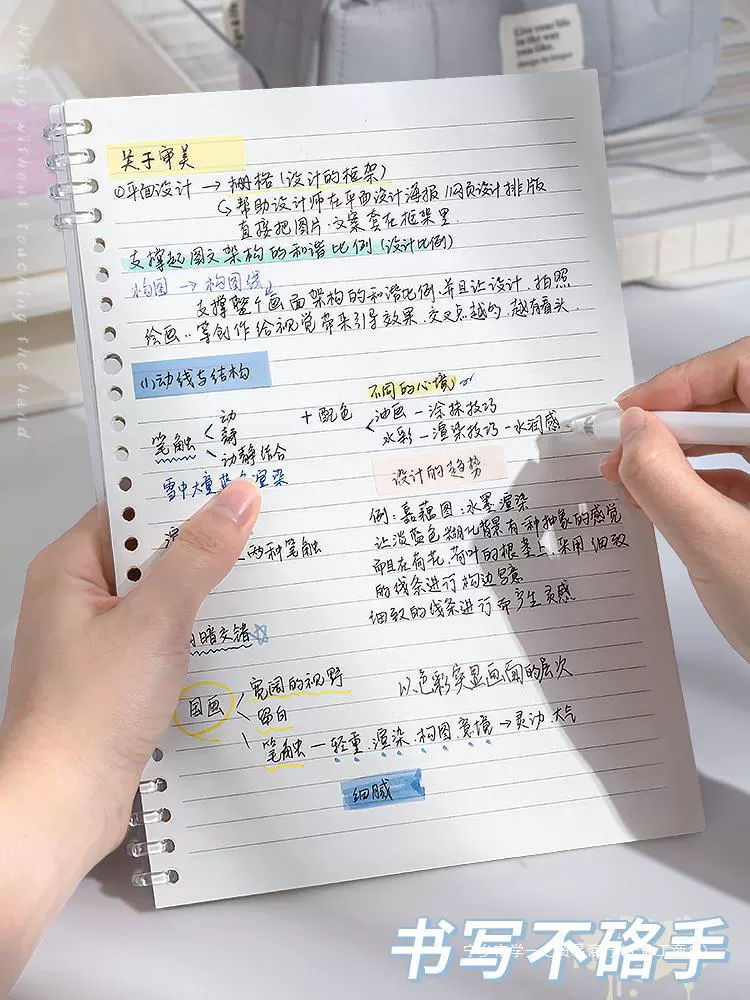 关于审美
①平面设计 → 栅格(设计的框架)
↳ 帮助设计师在平面设计海报、网页设计排版
直接把图片.文案套在框架里.
支撑起图文架构的和谐比例(设计比例)
构图 → 构图线
支撑整个画面架构的和谐比例.并且让设计、拍照
绘画..等创作给视觉带来引导效果.交叉点越多.越有看头.
(1)动线与结构
不同的心境
动
笔触 < 静
动静结合
+ 配色
油画 — 涂抹技巧
水彩 — 渲染技巧 - 水润感
雪中大量蓝色渲染
设计的趋势
例:嘉藕图:水墨渲染
让淡蓝色糊化背景有一种抽象的感觉
而且在荷花.荷叶的根茎上.采用细致
的线条进行构边
细致的线条进行而产生灵感
两种笔触
暗交错
国画 < 宽阔的视野
留白
笔触 — 轻重.渲染.构图.意境 → 灵动.大气
以色彩突显画面的层次
细腻
Live your life
in the way
you like.
Writing without touching the hand
书写不硌手